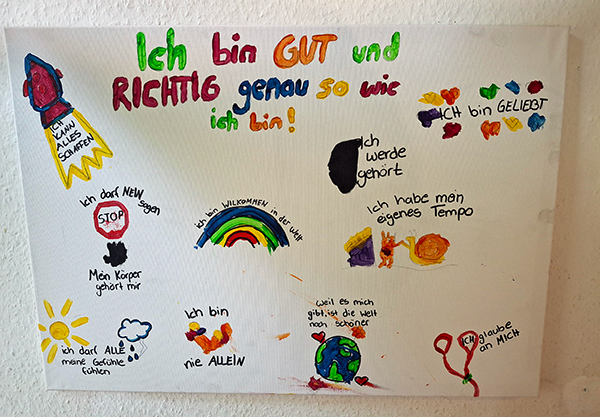 Ich bin GUT und
RICHTIG genau so wie
ich bin!
ICH
KANN
ALLES
SCHAFFEN
ICH bin GELIEBT
Ich
werde
gehört
Ich darf NEIN sagen
STOP
Mein Körper
gehört mir
ich bin WILKOMMEN in der Welt
Ich habe mein
eigenes Tempo
ich darf ALLE
meine Gefühle
fühlen
Ich bin
nie ALLEIN
weil es mich
gibt, ist die Welt
noch schöner
ICH glaube
an MICH